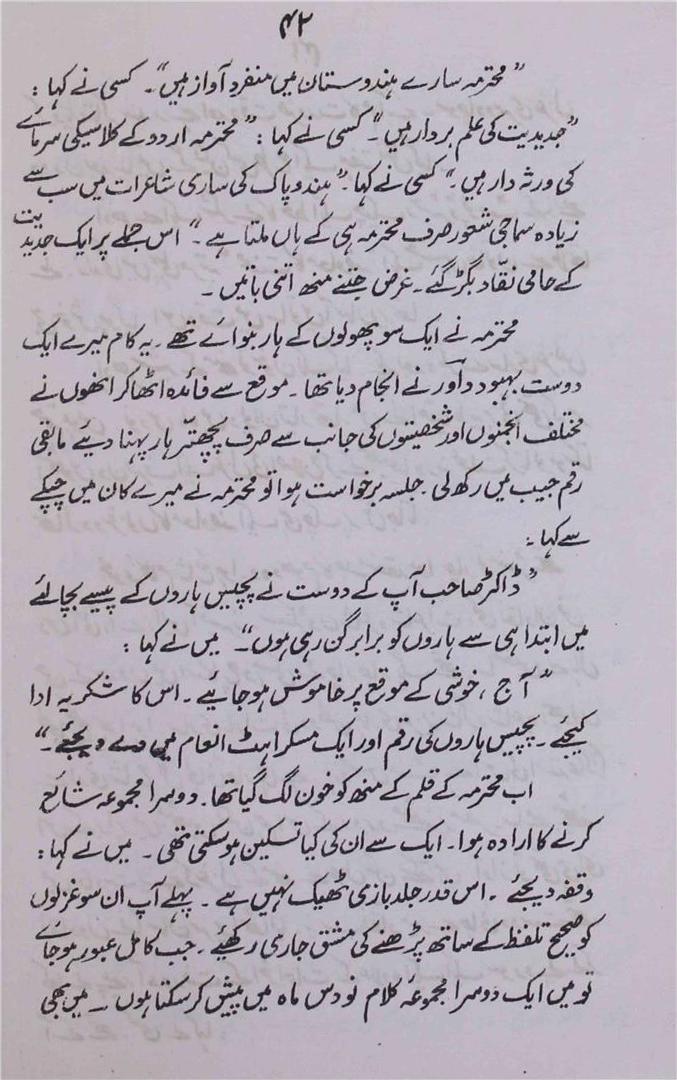 ۴۲
"محترمہ سارے ہندوستان میں منفرد آواز ہیں"۔ کسی نے کہا :
"جدیدیت کی علم بردار ہیں"۔ کسی نے کہا : "محترمہ اردو کے کلاسیکی سرمائے
کی ورثہ دار ہیں۔" کسی نے کہا۔ "ہند و پاک کی ساری شاعرات میں سب سے
زیادہ سماجی شعور صرف محترمہ ہی کے ہاں ملتا ہے۔" اس جملے پر ایک جدیدیت
کے حامی نقّاد بگڑ گئے۔ غرض جتنے منھ اتنی باتیں ۔
محترمہ نے ایک سو پھولوں کے ہار بنوائے تھے ۔ یہ کام میرے ایک
دوست بہبود داور نے انجام دیا تھا ۔ موقع سے فائدہ اٹھا کر انھوں نے
مختلف انجمنوں اور شخصیتوں کی جانب سے صرف پچھتّر ہار پہنا دیئے مابقی
رقم جیب میں رکھ لی ۔ جلسہ برخواست ہوا تو محترمہ نے میرے کان میں چپکے
سے کہا :
"ڈاکٹر صاحب آپ کے دوست نے پچیس ہاروں کے پیسے بچالئے
میں ابتدا ہی سے ہاروں کو برابر گن رہی ہوں"۔ میں نے کہا :
"آج ، خوشی کے موقع پر خاموش ہو جائیے ۔ اس کا شکریہ ادا
کیجئے ۔ پچیس ہاروں کی رقم اور ایک مسکراہٹ انعام میں دے دیجئے ۔"
اب محترمہ کے قلم کے منھ کو خون لگ گیا تھا۔ دوسرا مجموعہ شائع
کرنے کا ارادہ ہوا۔ ایک سے ان کی کیا تسکین ہو سکتی تھی ۔ میں نے کہا :
وقفہ دیجئے ۔ اس قدر جلد بازی ٹھیک نہیں ہے ۔ پہلے آپ ان سو غزلوں
کو صحیح تلفظ کے ساتھ پڑھنے کی مشق جاری رکھئے ۔ جب کامل عبور ہو جائے
تو میں ایک دوسرا مجموعۂ کلام نو دس ماہ میں پیش کر سکتا ہوں ۔ میں بھی